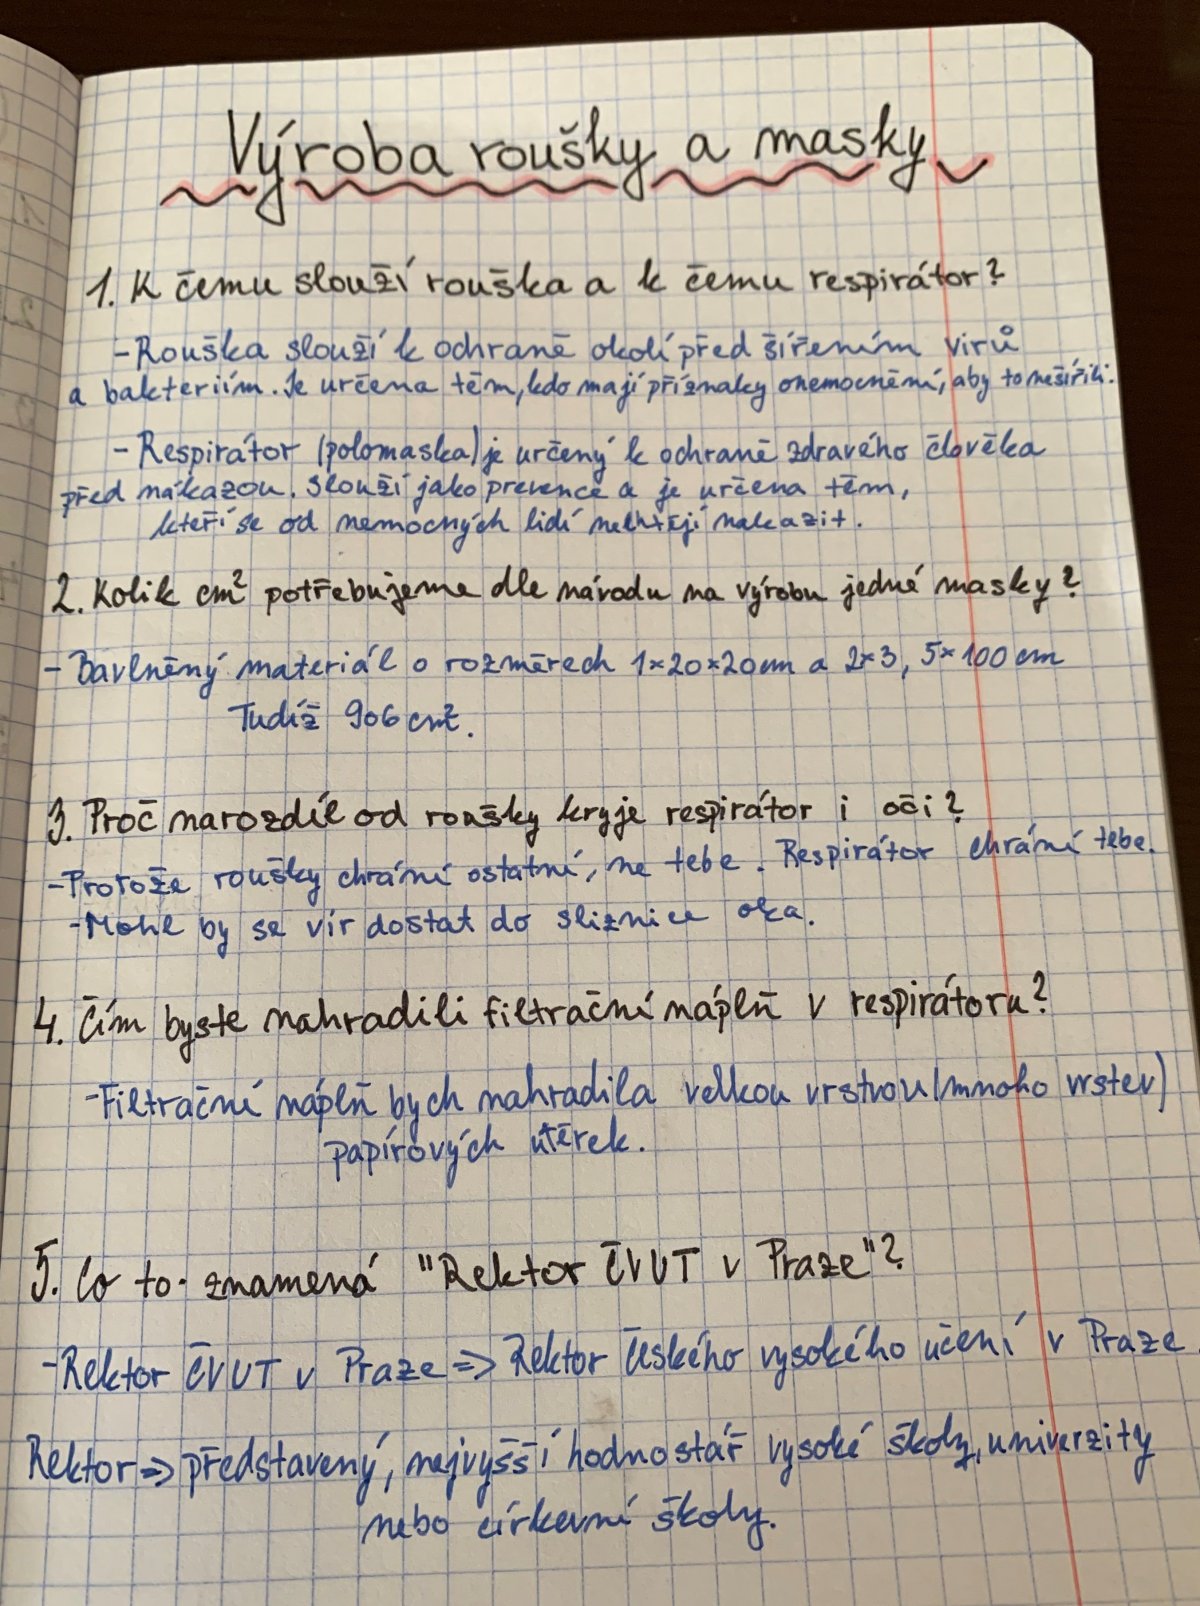 Výroba roušky a masky
1. K čemu slouží rouška a k čemu respirátor?
- Rouška slouží k ochraně okolí před šířením virů
a bakteriím. Je určena těm, kdo mají příznaky onemocnění, aby to nešířili.
- Respirátor (polomaska) je určený k ochraně zdravého člověka
před nákazou. Slouží jako prevence a je určena těm,
kteří se od nemocných lidí nechtějí nakazit.
2. Kolik cm² potřebujeme dle návodu na výrobu jedné masky?
- Bavlněný materiál o rozměrech 1×20×20cm a 2×3, 5×100 cm
Tudíž 906 cm².
3. Proč narozdíl od roušky kryje respirátor i oči?
- Protože roušky chrání ostatní, ne tebe. Respirátor chrání tebe.
- Mohl by se vir dostat do sliznice oka.
4. Čím byste nahradili filtrační náplň v respirátoru?
- Filtrační náplň bych nahradila velkou vrstvou (mnoho vrstev)
papírových utěrek.
5. Co to znamená "Rektor ČVUT v Praze"?
- Rektor ČVUT v Praze => Rektor Českého vysokého učení v Praze.
Rektor => představený, nejvyšší hodnostář vysoké školy, univerzity
nebo církevní školy.